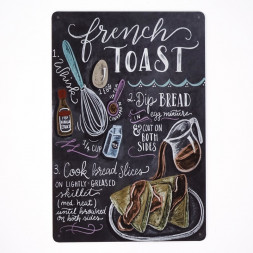 french
TOAST
1. Whisk
1/4 CUP
2. Dip BREAD
IN egg mixture
& COAT ON
BOTH
SIDES
3. Cook bread slices
ON LIGHTLY-GREASED
skillet
(med heat)
until browned
on both sides